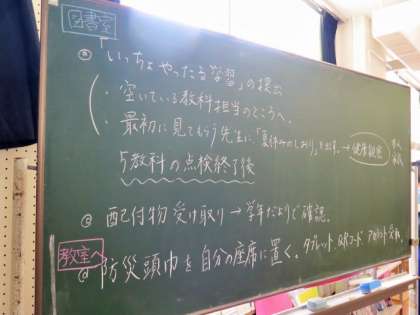 図書室
◎「いっちょやったる学習」の提出
・空いている教科担当のところへ。
・最初に見てもらう先生に、「夏休みのしおり」を出す。→健康観察
5教科の点検終了後
◎配付物受け取り→学年だよりで確認。
教室へ
◎防災頭巾を自分の座席に置く。タブレット QRコード